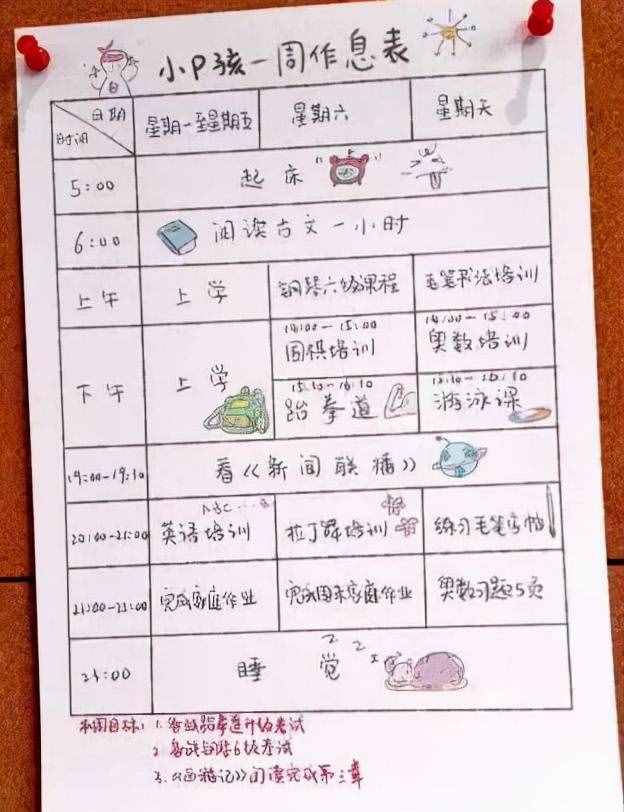 小P孩一周作息表
日期
时间
星期一至星期五 星期六 星期天
5:00 起床
6:00 阅读古文一小时
上午 上学 钢琴六级课程 毛笔书法培训
下午 上学
14:00-15:00 14:00-15:00
围棋培训 奥数培训
15:10-16:10 15:10-16:10
跆拳道 游泳课
19:00-19:10 看《新闻联播》
ABC...
20:00-21:00 英语培训 拉丁舞培训 练习毛笔字帖
21:00-23:00 完成家庭作业 完成周末家庭作业 奥数习题5页
24:00 睡觉 z z z
本周目标: 1. 备战跆拳道升级考试
2. 备战钢琴6级考试
3. 《西游记》阅读完成第三章